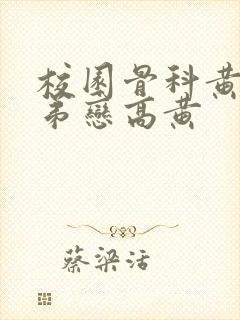 校園骨科黃
弟戀高黃
蔡梁活